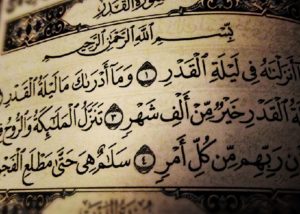 سُورَةُ الْقَدْرِ
بِسْمِ اللَّهِ الرَّحْمَٰنِ الرَّحِيمِ
أَنزَلْنَٰهُ فِي لَيْلَةِ الْقَدْرِ ١ وَمَا أَدْرَىٰكَ مَا لَيْلَةُ الْقَدْرِ
الْقَدْرِ خَيْرٌ مِّنْ أَلْفِ شَهْرٍ ٣ تَنَزَّلُ الْمَلَٰٓئِكَةُ وَالرُّوحُ
رَبِّهِم مِّن كُلِّ أَمْرٍ ٤ سَلَٰمٌ هِيَ حَتَّىٰ مَطْلَعِ الْفَجْ